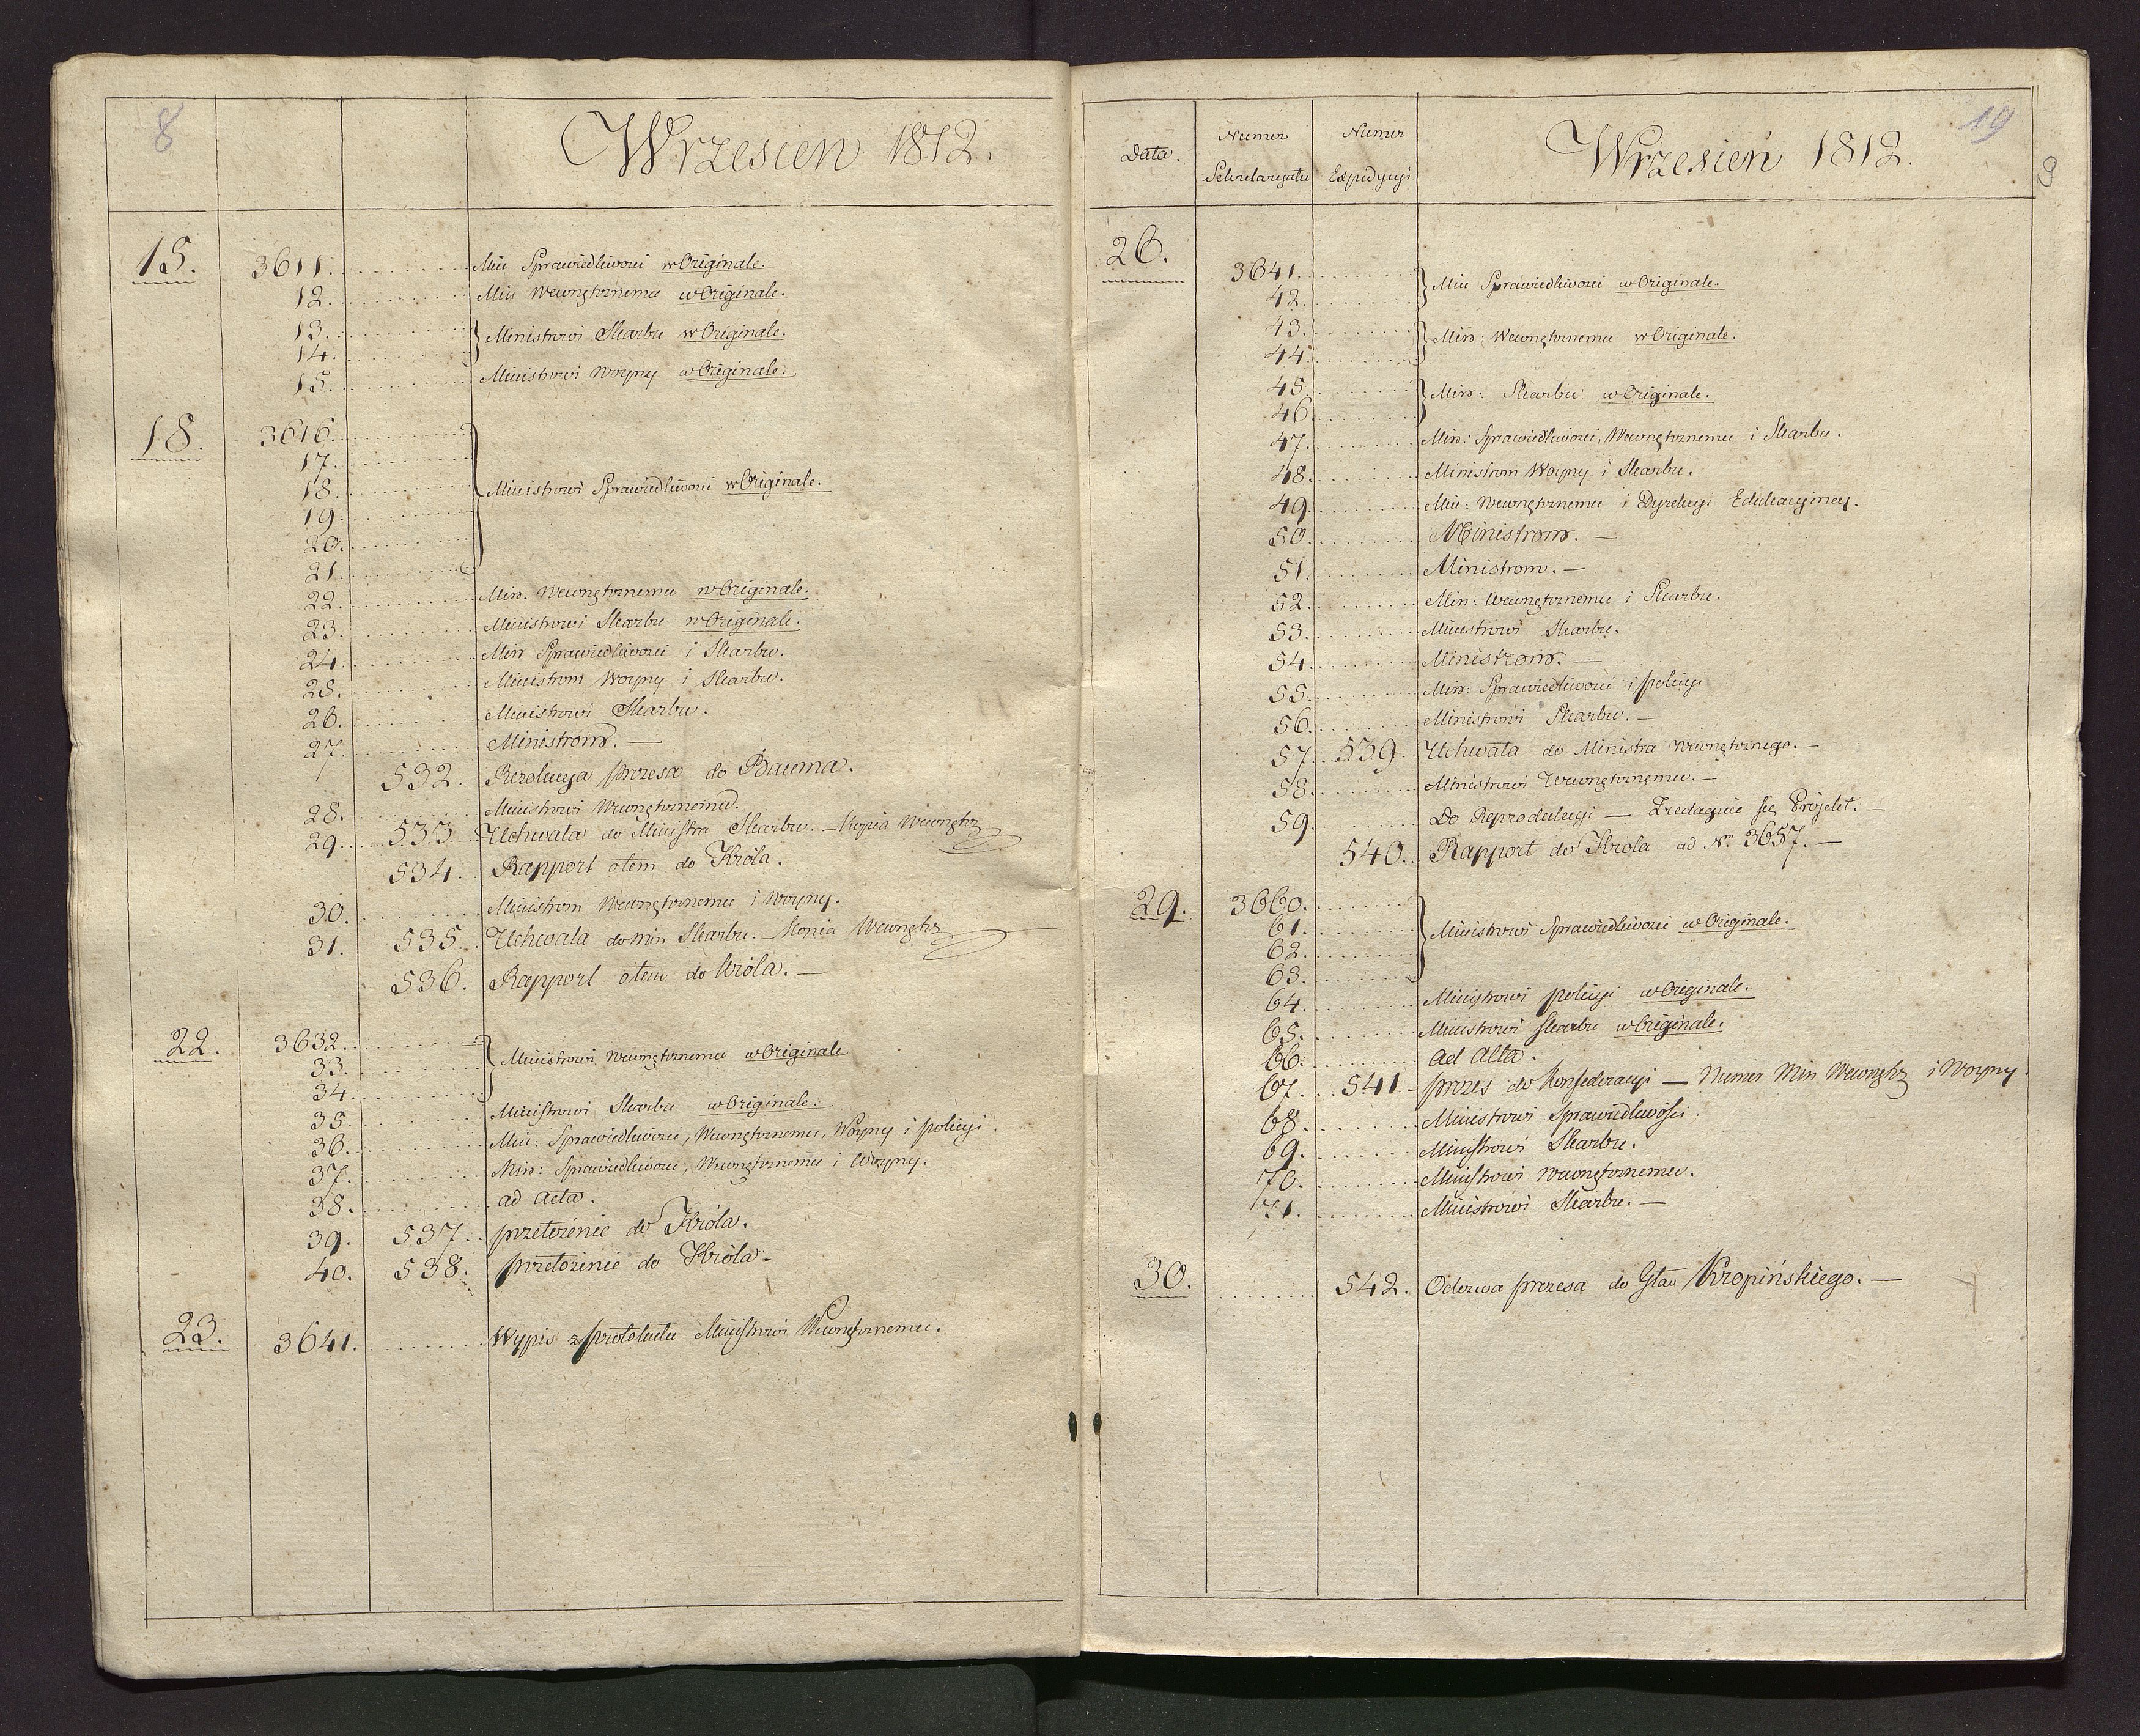 8
Wrzesien 1812.
15. 3611. Min Sprawiedliwosci w Originale.
12. Min Wewnętrznemu w Originale.
13.
14. } Ministrowi Skarbu w Originale.
15. Ministrowi Woyny w Originale.
18. 3616.
17.
18.
19. } Ministrowi Sprawiedliwosci w Originale.
20.
21.
22. Min. Wewnętrznemu w Originale.
23. Ministrowi Skarbu w Originale.
24. Min Sprawiedliwosci i Skarbu.
25. Ministrom Woyny i Skarbu.
26. Ministrowi Skarbu.
27. Ministrom. —
532. Rezolucya prezesa do Bauma.
28. Ministrowi Wewnętrznemu.
29. 533. Uchwała do Ministra Skarbu. — Kopia Wewnętrz
534. Rapport otem do Króla.
30. Ministrom Wewnętrznemu i Woyny.
31. 535. Uchwała do Min Skarbu. — Kopia Wewnętrz
536. Rapport otem do Króla. —
22. 3632.
33. } Ministrowi Wewnętrznemu w Originale
34.
35. Ministrowi Skarbu w Originale.
36. Min: Sprawiedliwosci, Wewnętrznemu, Woyny i policyi.
37. Min: Sprawiedliwosci, Wewnętrznemu i Woyny.
38. ad acta.
39. 537. przełożenie do Króla.
40. 538. przełożenie do Króla.
23. 3641. Wypis z protokułu Ministrowi Wewnętrznemu.
19
8
Data. Numer Sekretaryatu Numer Expedycyi Wrzesień 1812.
26. 3641.
42. } Min Sprawiedliwosci w Originale.
43.
44. } Min: Wewnętrznemu w Originale.
45.
46. } Min: Skarbu w Originale.
47. Min: Sprawiedliwosci, Wewnętrznemu i Skarbu.
48. Ministrom Woyny i Skarbu.
49. Min: Wewnętrznemu i Dyrekcyi Edukacyiney.
50. Ministrom. —
51. Ministrom. —
52. Min: Wewnętrznemu i Skarbu.
53. Ministrowi Skarbu.
54. Ministrom. —
55. Min: Sprawiedliwosci i policyi
56. Ministrowi Skarbu. —
57. 539. Uchwała do Ministra Wewnętrznego. —
58. Ministrowi Wewnętrznemu. —
59. Do Reprodukcyi — Zredaguie się Proiekt. —
540. Rapport do Króla ad Nr 3657. —
29. 3660.
61.
62. } Ministrowi Sprawiedliwosci w Originale.
63.
64. Ministrowi policyi w Originale.
65. Ministrowi skarbu w Originale.
66. ad acta.
67. 541. prezes do Konfederacyi — Numer Min Wewnętrz i Woyny.
68. Ministrowi Sprawiedliwości.
69. Ministrowi Skarbu.
70. Ministrowi Wewnętrznemu.
71. Ministrowi Skarbu. —
30. 542. Odezwa prezesa do Gła Kropińskiego. —